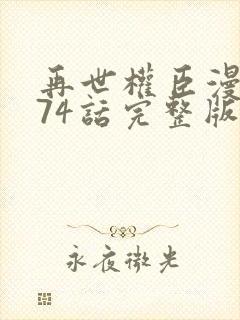 再世權臣漫
74話完整版
永夜微光